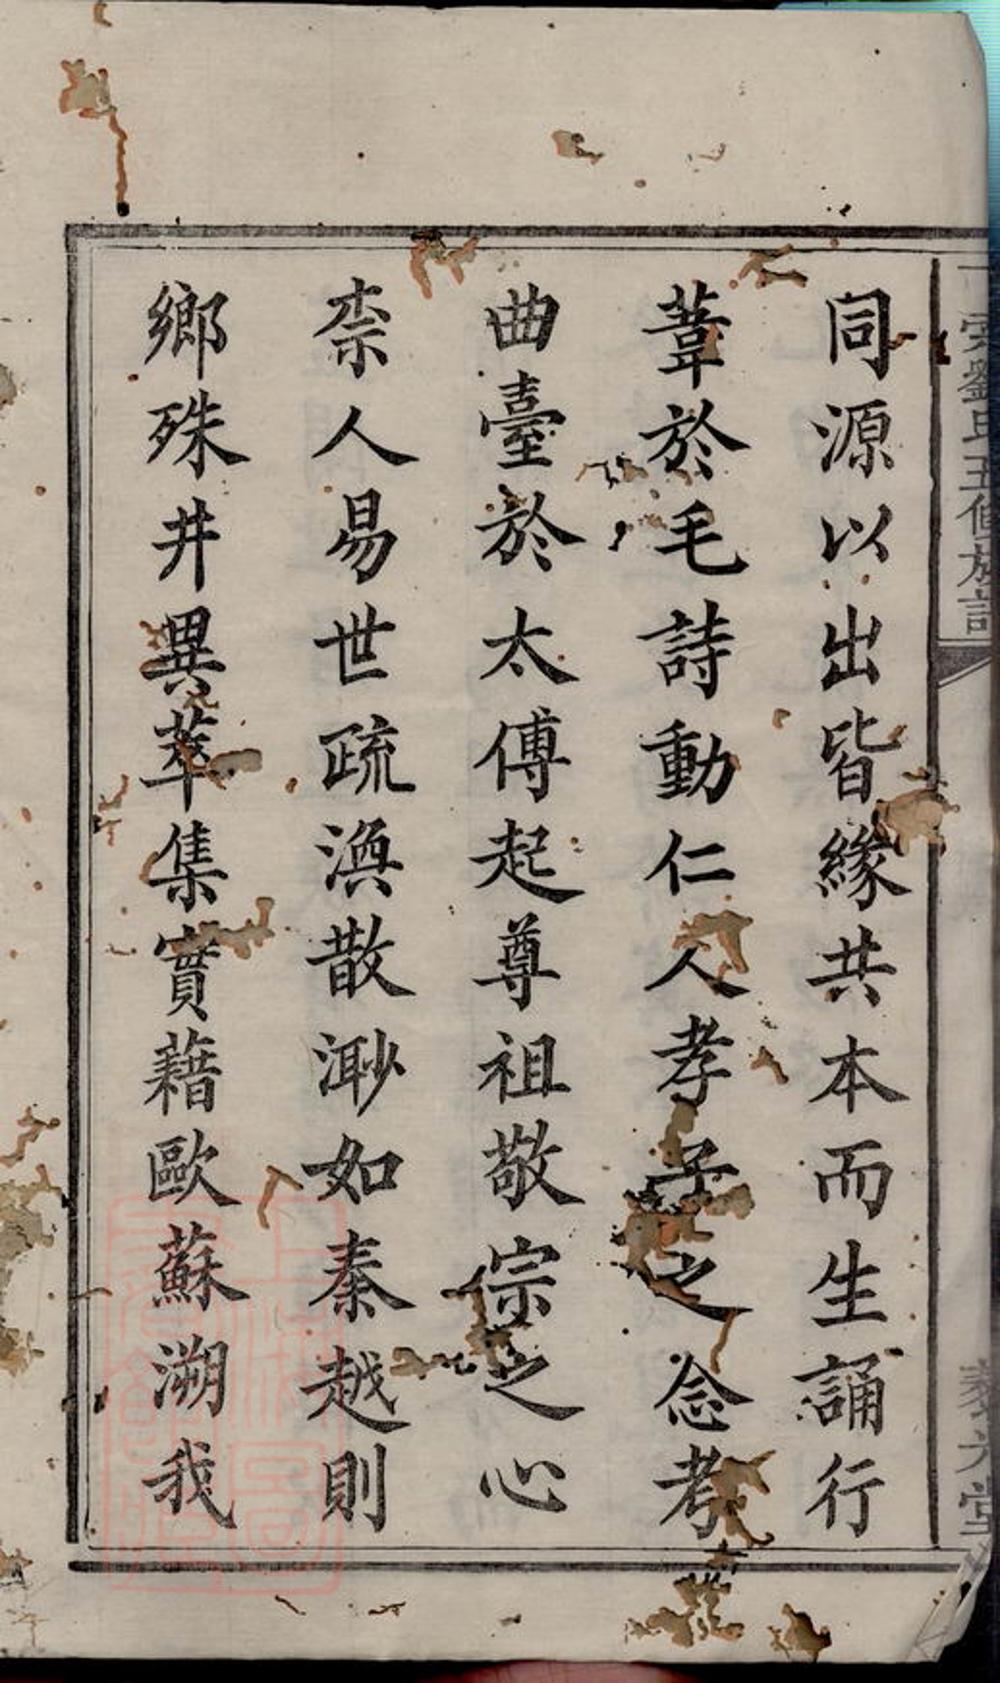 劉氏五修族譜
同源以出皆緣共本而生誦行
葦於毛詩動仁人孝子之念考
曲臺於太傅起尊祖敬宗之心
柰人易世疏渙散渺如秦越則
鄉殊井異萃集實藉歐蘇溯我